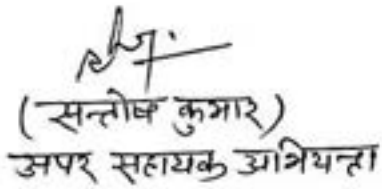 (सन्तोष कुमार)
अपर सहायक अभियन्ता